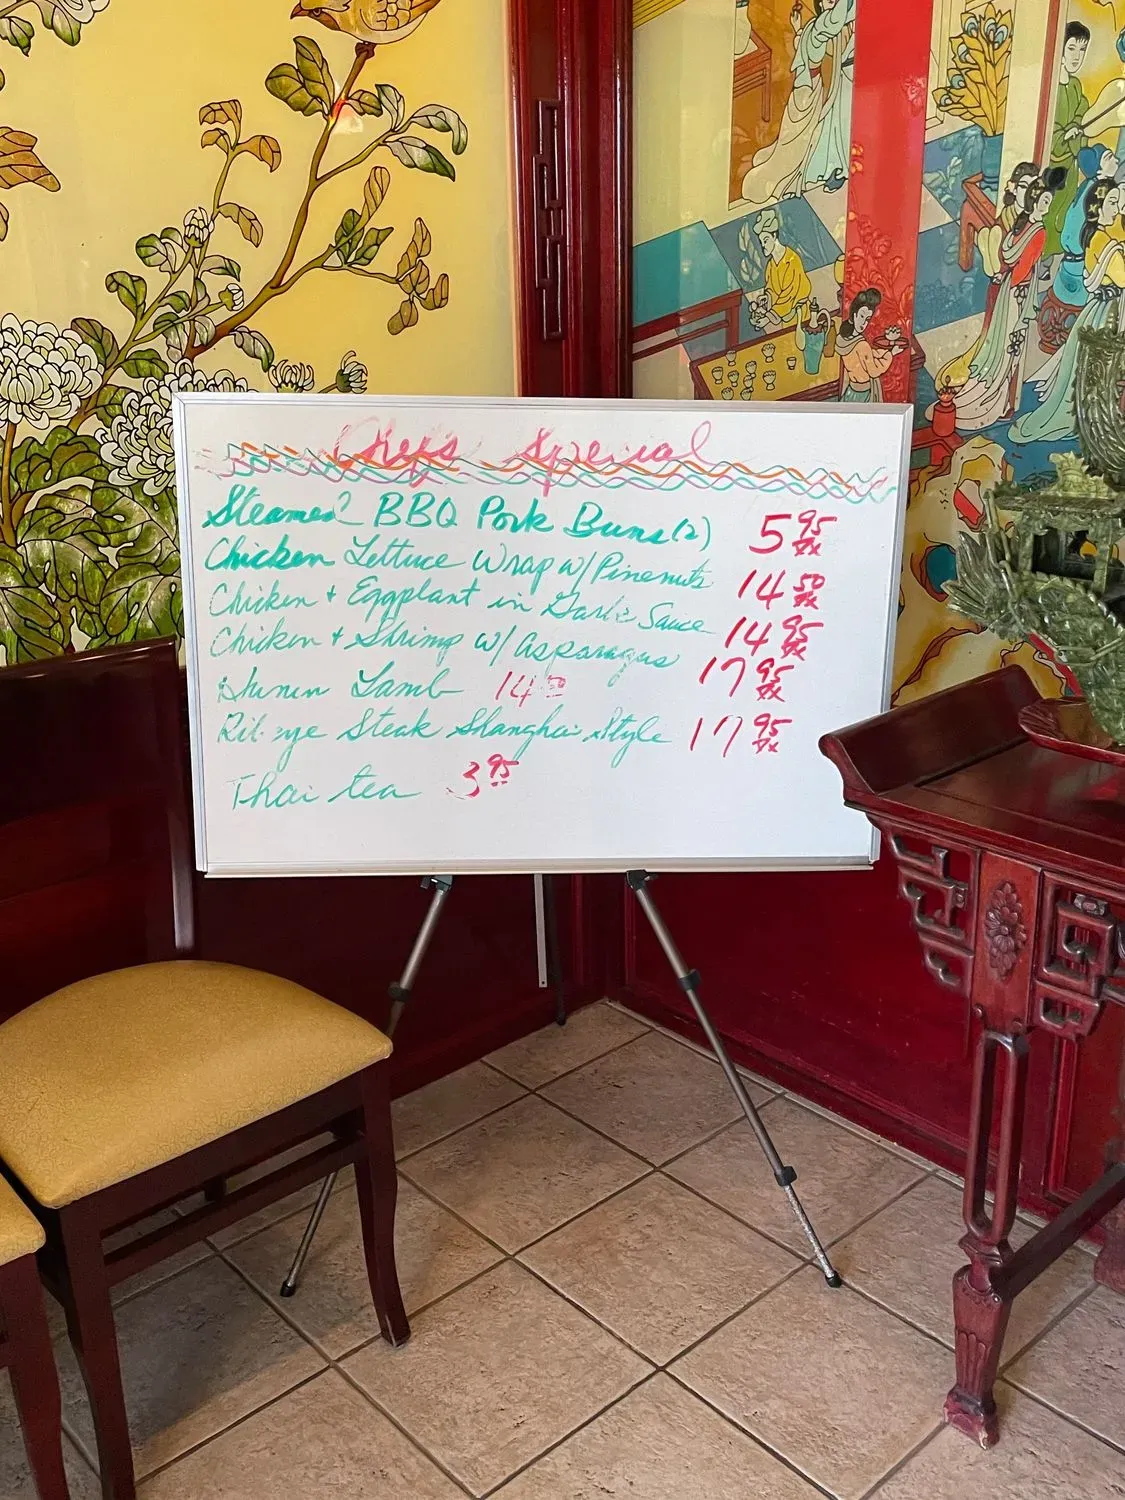 Chefs Special
Steamed BBQ Pork Buns (2) 5 95
Chicken Lettuce Wrap w/ Pinenuts 14 50
Chicken + Eggplant in Garlic Sauce 14 95
Chicken + Shrimp w/ asparagus 17 95
Hunan Lamb 14
Rib eye Steak Shanghai Style 17 95
Thai tea 3 95